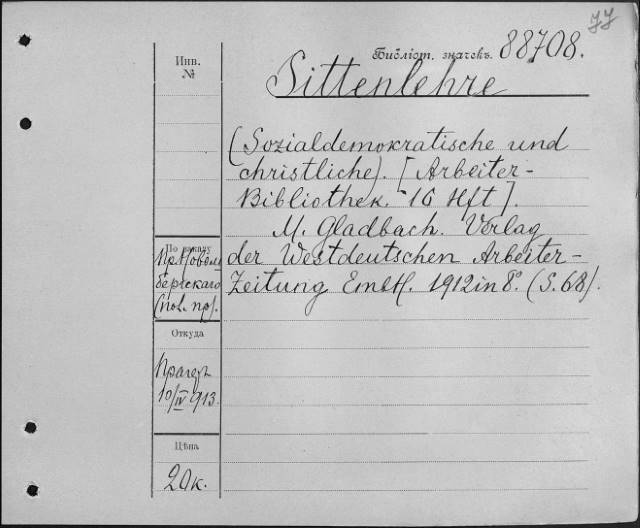 JJ
Инв.
№
Библіот. значекъ. 88708.
Sittenlehre
(Sozialdemokratische und
christliche). [Arbeiter-
Bibliothek. 16 Hft].
M. Gladbach. Verlag
der Westdeutschen Arbeiter-
Zeitung GmbH. 1912 in 8°. (S. 68).
По заказу
бергскаго
Откуда
Прагеръ
10/IV 913.
Цѣна
20к.